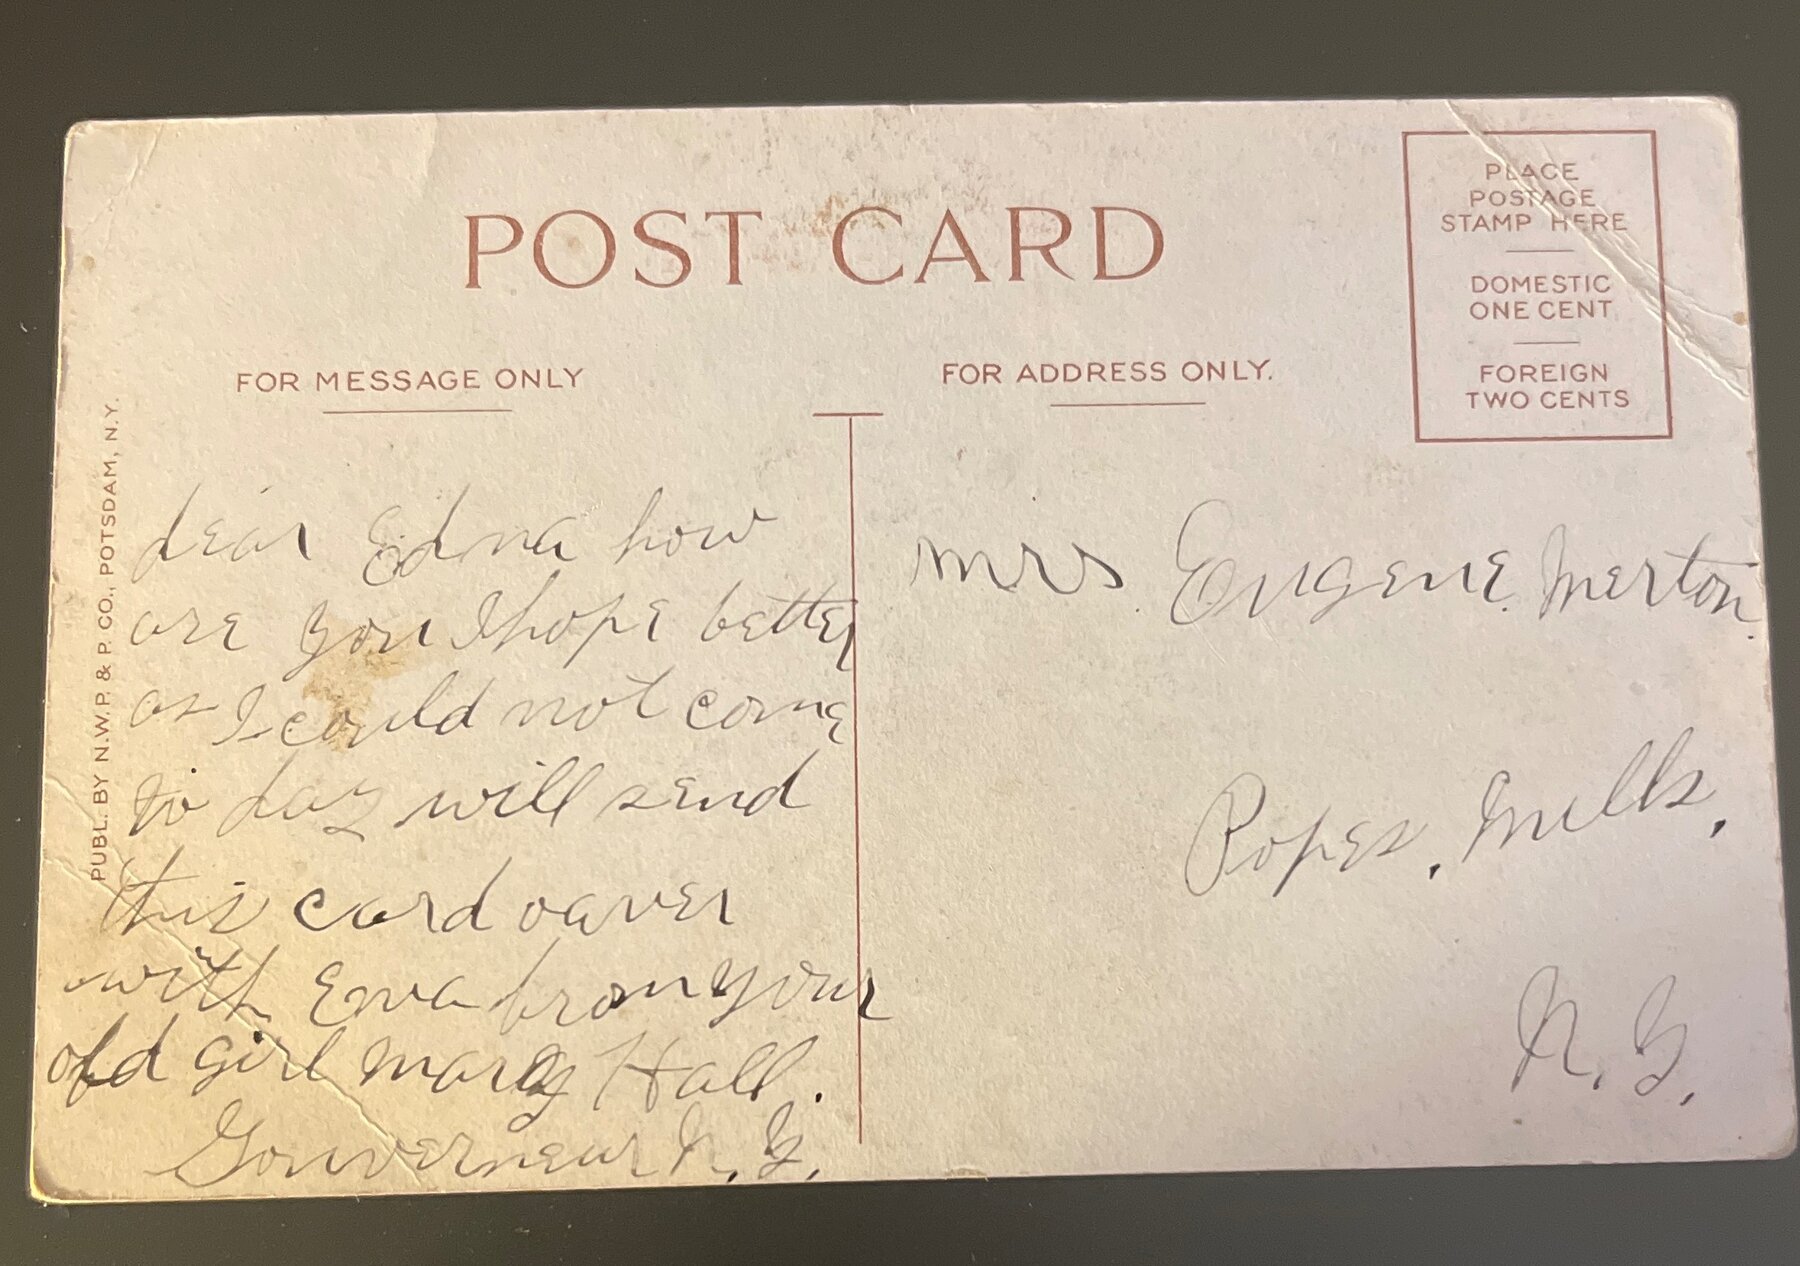 POST CARD
PLACE
POSTAGE
STAMP HERE
DOMESTIC
ONE CENT
FOREIGN
TWO CENTS
FOR MESSAGE ONLY
FOR ADDRESS ONLY.
PUBL. BY N.W.P. & P. CO., POTSDAM, N.Y.
dear Edna how
are you I hope better
as I could not come
to day will send
this card oaver
with Eva from your
old girl mary Hall.
Gouverneur N.Y.
mrs. Eugene Merton.
Popes. Mills.
N.Y.